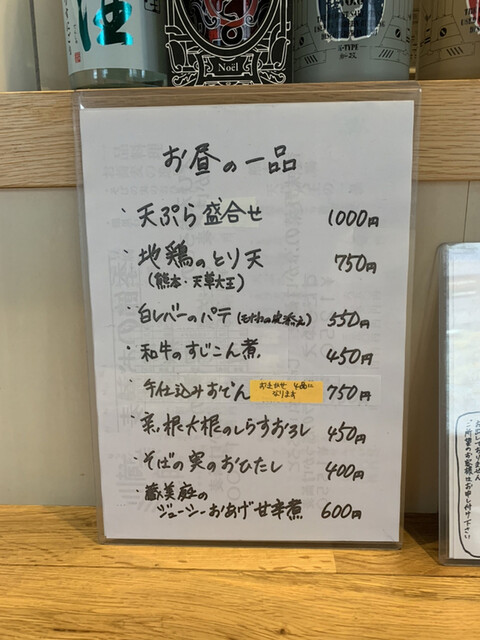 Noël
S-TYPE
お昼の一品
・天ぷら盛合せ 1000円
・地鶏のとり天 750円
(熊本・天草大王)
・白レバーのパテ 550円
・和牛のすじこん煮 450円
・手仕込みおでん おまかせ 4品に 750円
なります
・菜根大根のしらすおろし 450円
・そばの実のおひたし 400円
・蔵美庭の
ジューシーおあげ甘辛煮 600円
ご希望のお客様は
お申し付け下さい